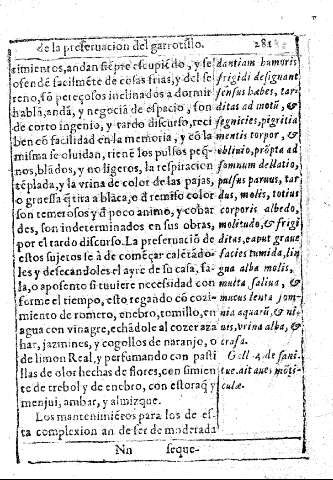 de la preseruacion del garrotillo. 281
cimientos, andan siẽpre escupiẽdo, y se
ofendẽ facilmẽte de cosas frias, y del se
reno, sõ pereçosos inclinados a dormir
hablã, andã, y negociã de espacio, son
de corto ingenio, y tardo discurso, reci
ben cõ facilidad en la memoria, y cõ la
misma se oluidan, tienẽ los pulsos peq̃-
nos, blãdos, y no ligeros, la respiracion
tẽplada, y la vrina de color de las pajas,
o gruessa q̃ tira a blãca, o d̃ remiso color
son temerosos y d̃ poco animo, y cobar
des, son indeterminados en sus obras,
por el tardo discurso. La preseruaciõ de
estos sujetos se à de começar calẽtãdo
les y desecandoles el ayre de su casa, sa-
la, o aposento si tuuiere necessidad con
forme el tiempo, esto regando cõ cozi-
miento de romero, enebro, tomillo, en
agua con vinagre, echãdole al cozer aza
har, jazmines, y cogollos de naranjo, o
de limon Real, y perfumando con pasti
llas de olor hechas de flores, con simien
te de trebol y de enebro, con estoraq̃ y
menjui, ambar, y almizque.
Los mantenimiẽtos para los de es-
ta complexion an de ser de moderada
Nn seque-
dantiam humoris
frigidi designant
sensus habes, tar-
ditas ad motũ, &
segnicies, pigritia
mentis torpor, &
obliuio, prõpta ad
somnum dellatio,
pulsus paruus, tar
dus, molis, totius
corporis albedo,
molitudo, & frigi
ditas, caput graue
facies tumida, lin
gua alba molis,
multa saliua, &
mucus lenta som-
nia aquarũ, & ni-
uis, vrina alba, &
crasa.
Gall. 4. de sani.
tue. ait aues mõti-
culæ.